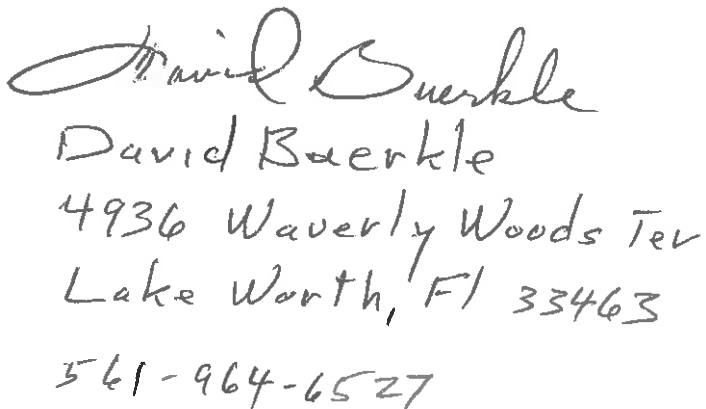 David Buerkle
David Buerkle
4936 Waverly Woods Ter
Lake Worth, Fl 33463
561-964-6527